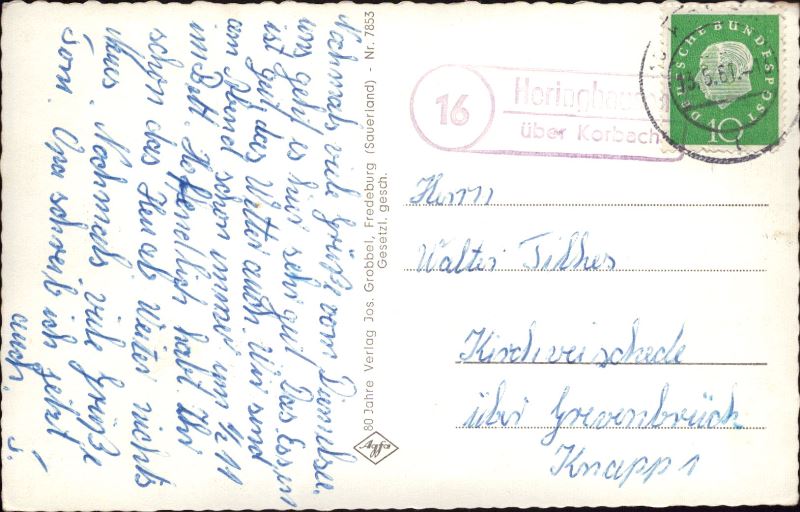 Nochmals viele Grüße vom Diemelsee.
uns geht es hier sehr gut. Das Essen
ist gut das Wetter auch. Wir sind
am Abend schon immer um ½ 11
im Bett. Hoffendlich habt Ihr
schon das Heu ab Wetter nichts
Nochmals viele Grüße
Toni. Opa schreib ich jetzt
auch.
80 Jahre Verlag Jos. Grobbel, Fredeburg (Sauerland) - Nr. 7853
Gesetzl. gesch.
Agfa
16
Heringhausen
über Korbach
DEUTSCHE BUNDESPOST
10
13.5.61.
Herrn
Walter Tillhes
Kirchveischede
über Grevenbrück
Knapp 1